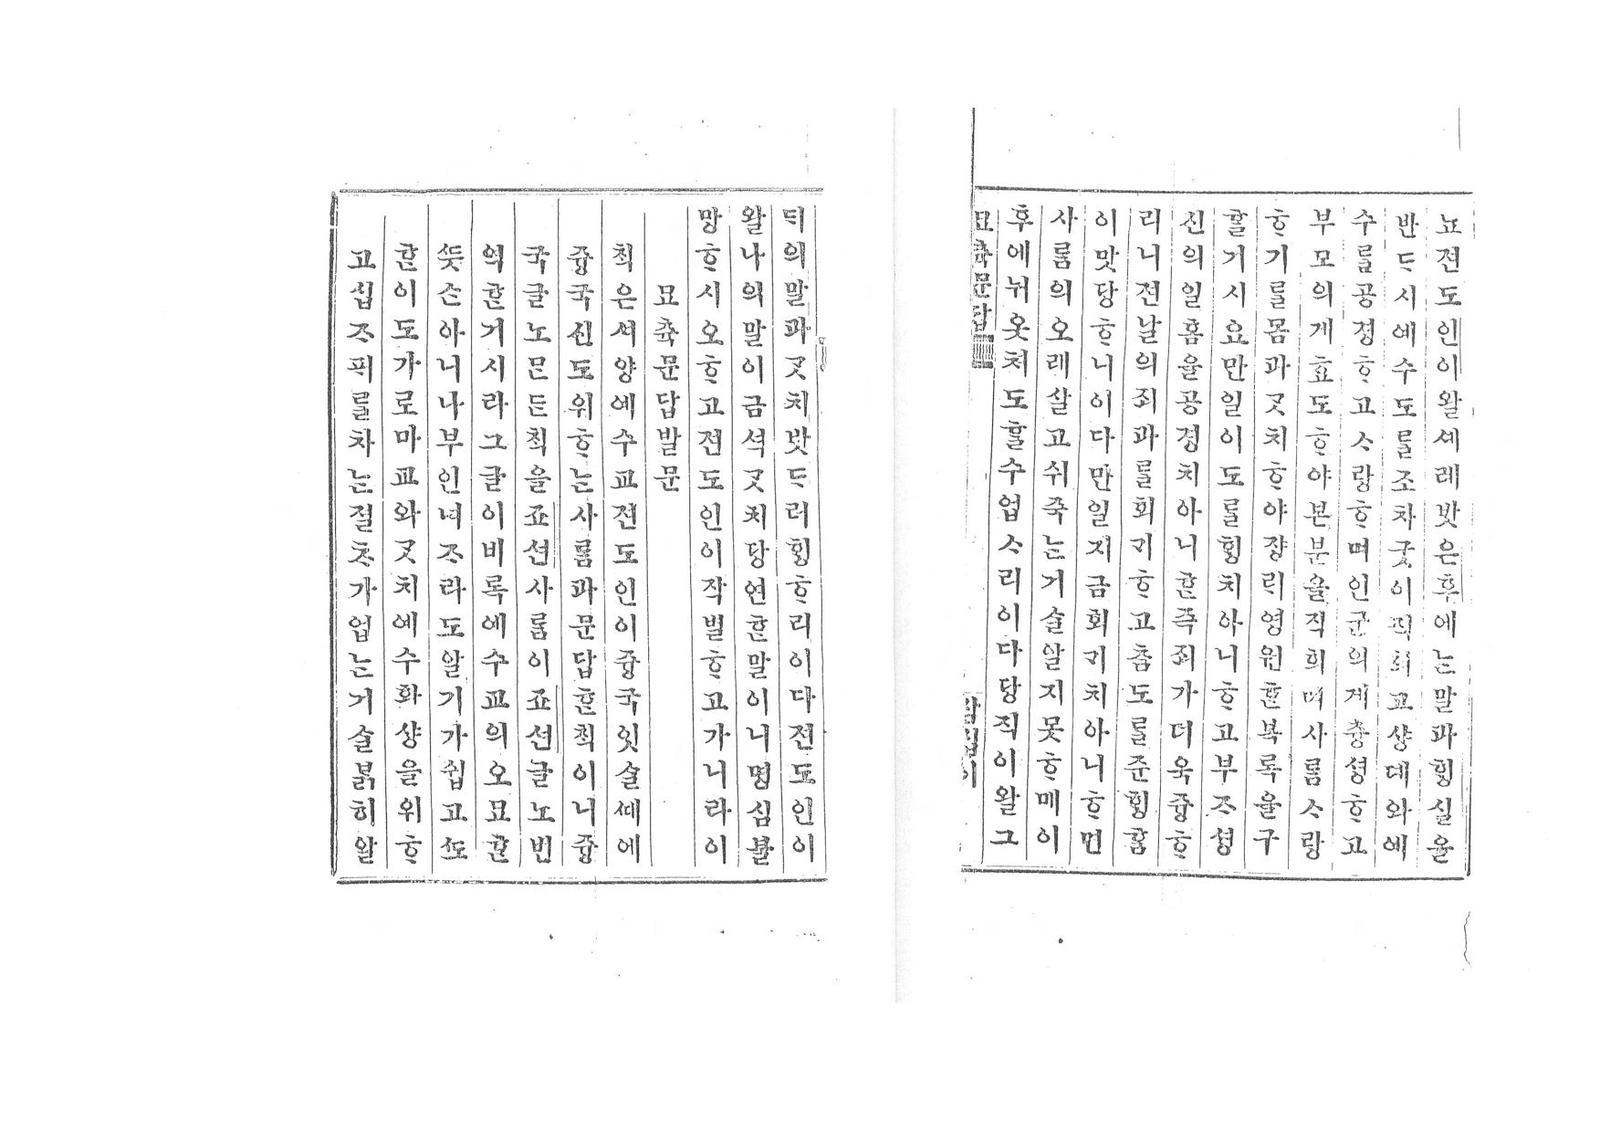 뇨젼도인이왈셰례밧은후에ᄂᆞᆫ말과ᄒᆡᆼ실을
반ᄃᆞ시예수도ᄅᆞᆯ조차ᄀᆞᆺ이직희고샹뎨와예
수ᄅᆞᆯ공경ᄒᆞ고ᄉᆞ랑ᄒᆞ며인군의게츙셩ᄒᆞ고
부모의게효도ᄒᆞ야본분을직희며사ᄅᆞᆷᄉᆞ랑
ᄒᆞ기ᄅᆞᆯ몸과ᄀᆞᆺ치ᄒᆞ야쟝ᄅᆡ영원ᄒᆞᆫ복록을구
ᄒᆞᆯ거시요만일이도ᄅᆞᆯᄒᆡᆼ치아니ᄒᆞ고부ᄌᆞ셩
신의일홈을공경치아니ᄒᆞᆫ즉죄가더욱즁ᄒᆞ
리니젼날의죄과ᄅᆞᆯ회ᄀᆡᄒᆞ고ᄎᆞᆷ도ᄅᆞᆯ쥰ᄒᆡᆼᄒᆞᆷ
이맛당ᄒᆞ니이다만일지금회ᄀᆡ치아니ᄒᆞ면
사ᄅᆞᆷ의오래살고쉬죽ᄂᆞᆫ거슬알지못ᄒᆞ매이
후에뉘웃쳐도ᄒᆞᆯ수업ᄉᆞ리이다당직이왈그
묘츅문답
ᄃᆡ의말과ᄀᆞᆺ치밧드러ᄒᆡᆼᄒᆞ리이다젼도인이
왈나의말이금셕ᄀᆞᆺ치당연ᄒᆞᆫ말이니명심불
망ᄒᆞ시오ᄒᆞ고젼도인이작별ᄒᆞ고가니라이
묘츅문답발문
ᄎᆡᆨ은셔양예수교젼도인이즁국잇슬ᄯᅢ에
즁국신도위ᄒᆞᄂᆞᆫ사ᄅᆞᆷ과문답ᄒᆞᆫᄎᆡᆨ이니즁
국글노ᄆᆞᆫᄃᆞᆫᄎᆡᆨ을죠션사ᄅᆞᆷ이죠션글노번
역ᄒᆞᆫ거시라그글이비록예수교의오묘ᄒᆞᆫ
ᄯᅳᆺ슨아니나부인녀ᄌᆞ라도알기가쉽고ᄯᅩ
ᄒᆞᆫ이도가로마교와ᄀᆞᆺ치예수화샹을위ᄒᆞ
고십ᄌᆞ픠ᄅᆞᆯ차ᄂᆞᆫ졀ᄎᆞ가업ᄂᆞᆫ거슬ᄇᆞᆰ히알